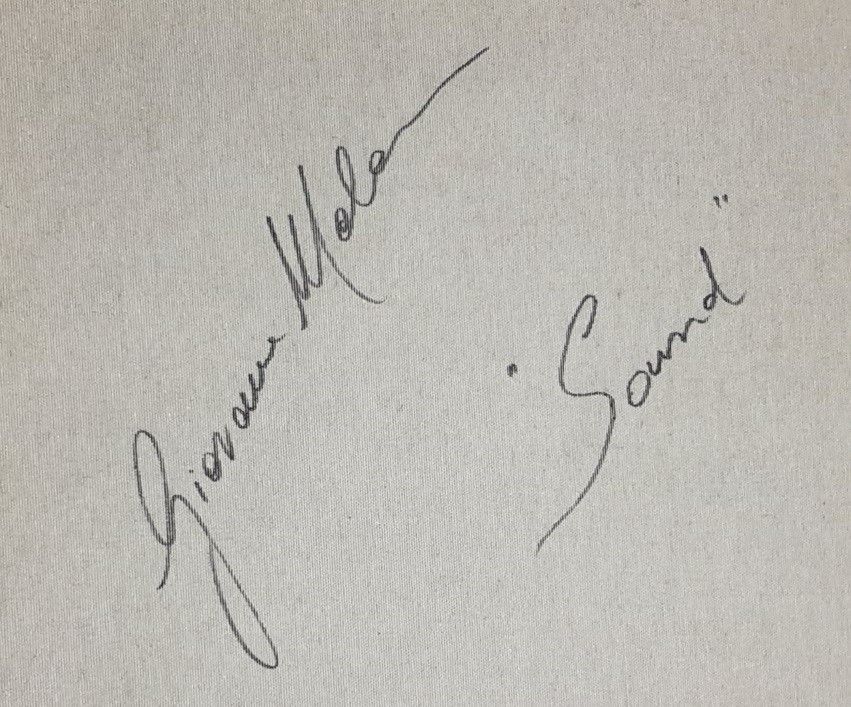 Giovanni Mola
"Sound"